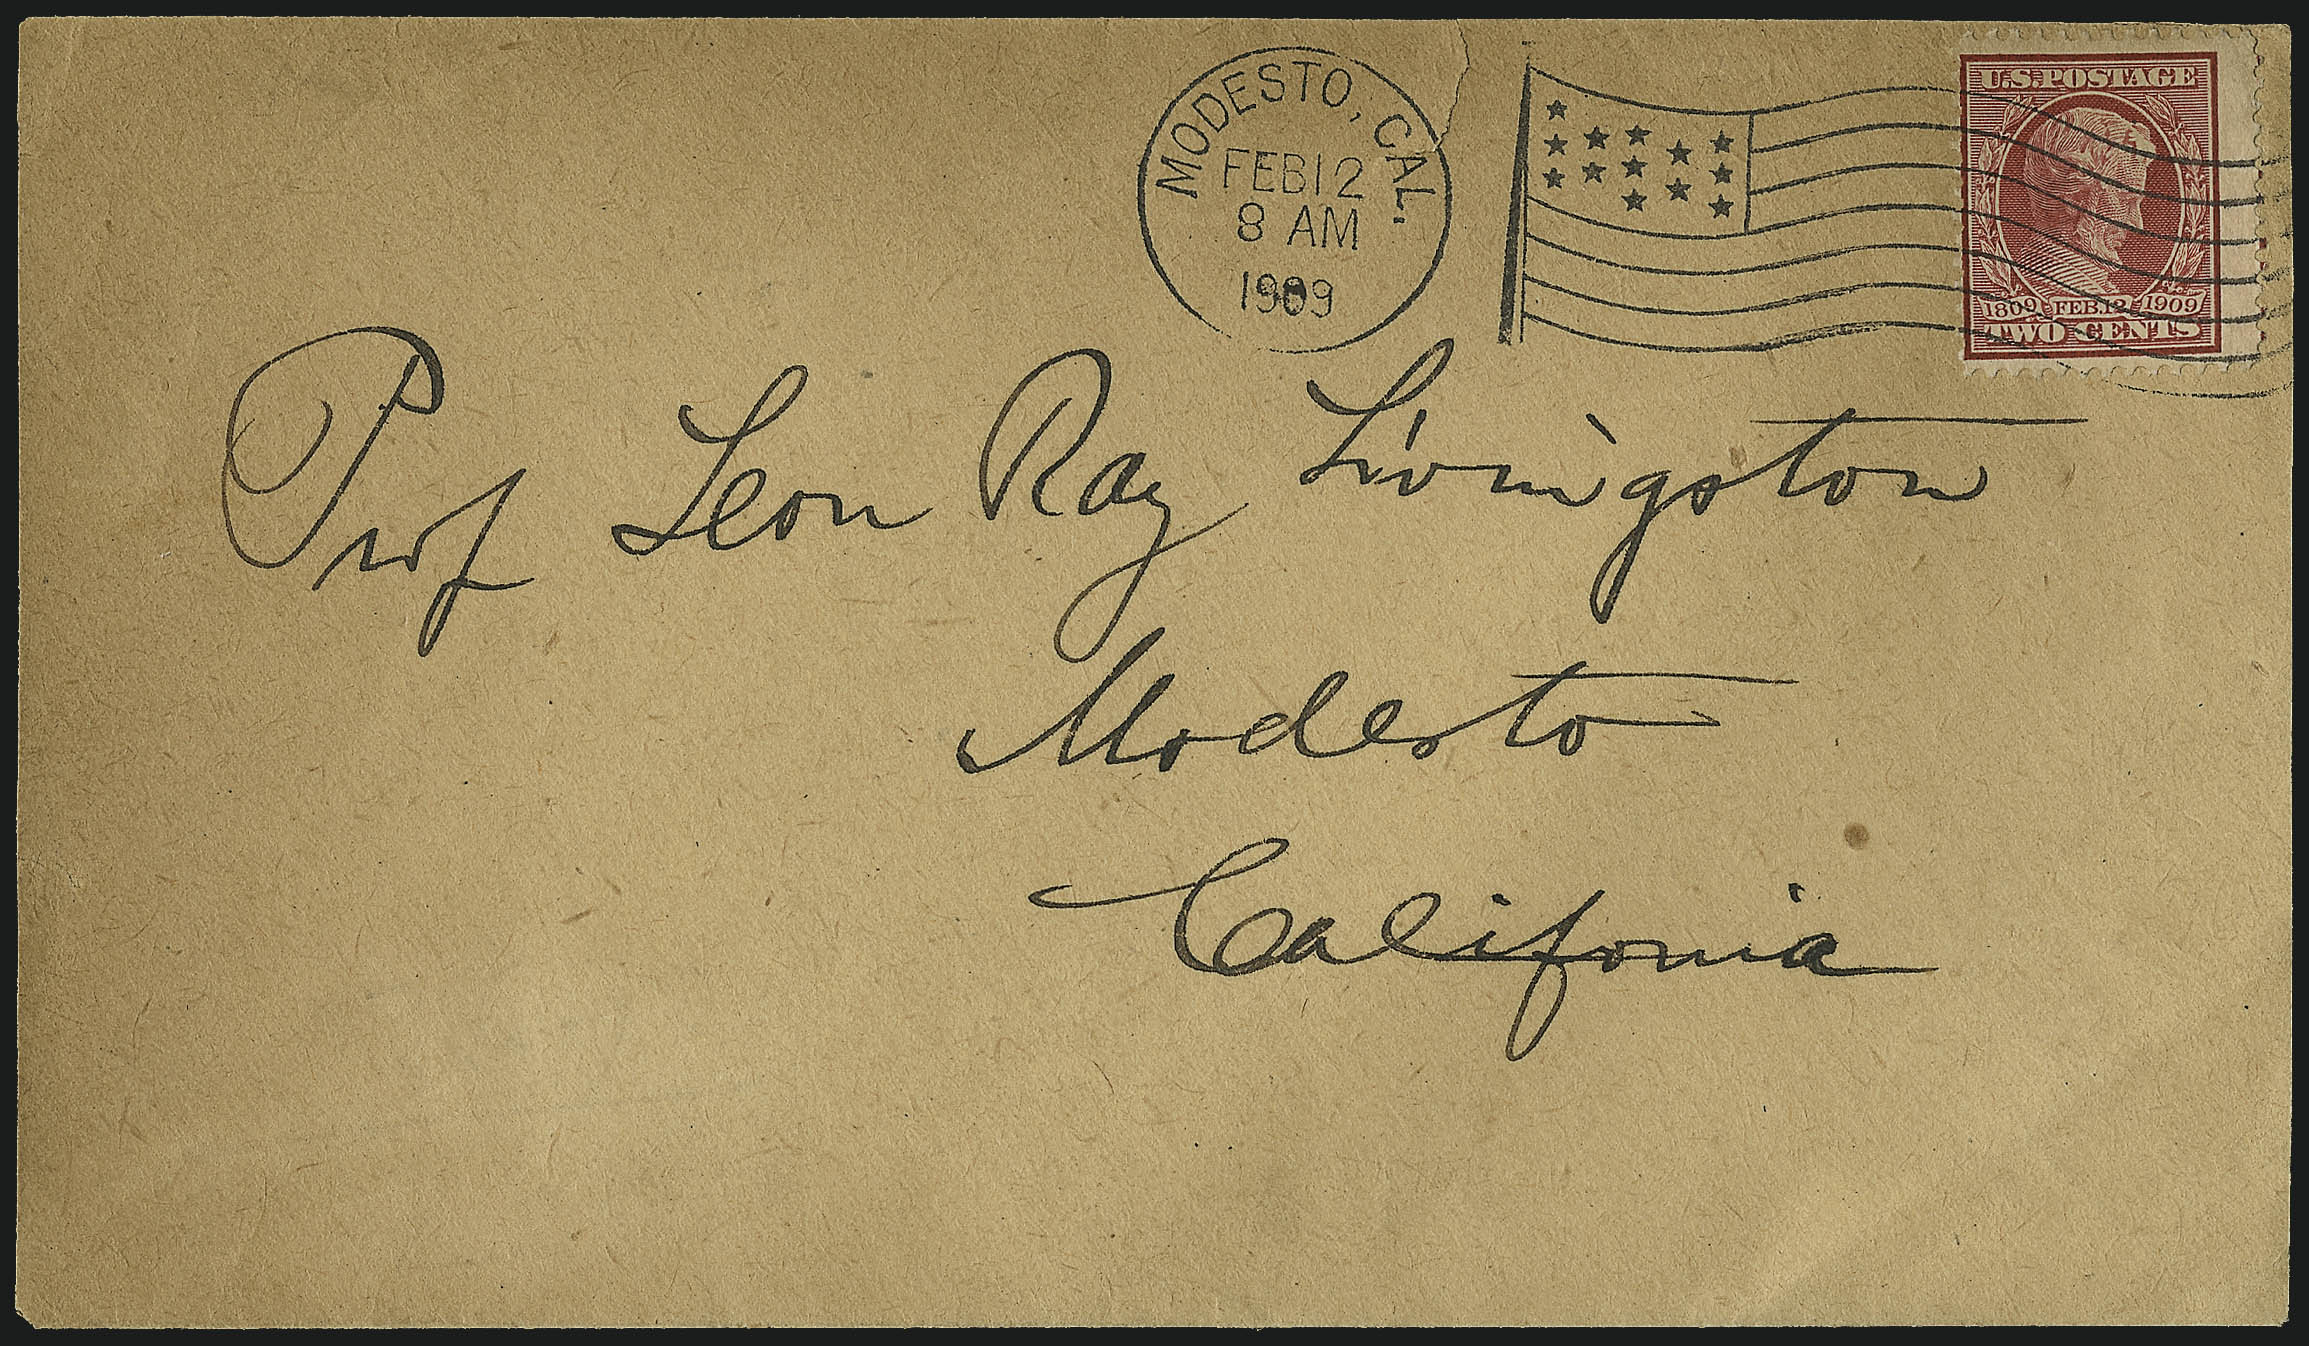 MODESTO, CAL.
FEB 12
8 AM
1909
U.S. POSTAGE
1809 FEB. 12 1909
TWO CENTS
Prof Leon Ray Livingston
Modesto
California